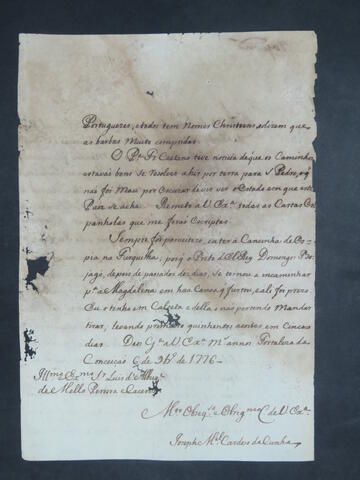 Portuguezes, etodos tem Nomes Christaons, edizem que
as barbas Muito compridas.
O Pe. Fr. Caetano teve noticia deque os Caminhos
estavaõ bons se resolveo ahir por terra para S. Pedro, oq
não foi Mau por escuzar de hir ver o Estado em que este
Paiz se acha. Remeto a V. Exa. todas as Cartas Es
panholas que me foraõ Escriptas.
Sempre foi percizo, eu ter a Canoinha de Es
pia na porq o Preto d'ElRey Domingos
jago, depois de passados dez dias, se tornou a encaminhar
pa. a Magdalena em hua Canoa q furtou, eali foi prezo
Eu o tenho em Calceta e della o não pertendo Mandar
tirar, levando primeiro quinhentos asoites em Cinco
dias. Deos Gde. a V. Exa. ms. annos. Fortaleza da
Conceição 6 de 9bro. de 1776-
Illmo. e Exmo. Sr. Luis d'Albuqe.
de Mello Pereira e Caceres
Mto. Obrigmo. C. de V. Exa.
Joseph Ml. Cardozo da Cunha